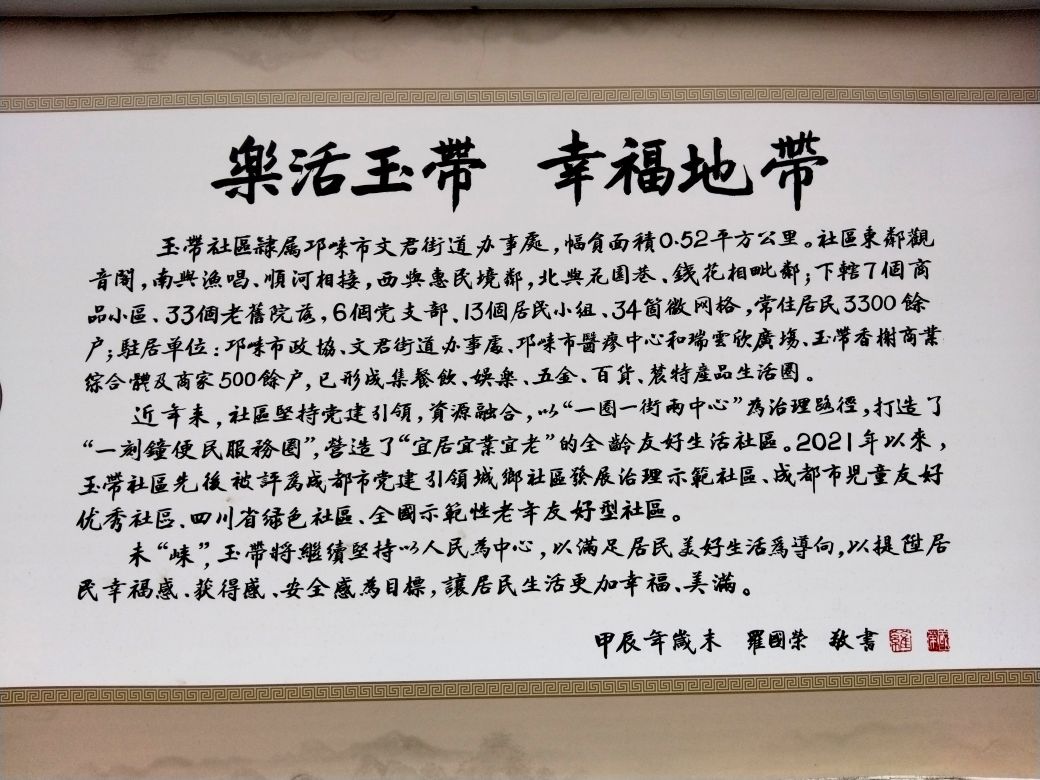 樂活玉帶 幸福地帶
玉帶社區隸属邛崍市文君街道办事處，幅員面積0.52平方公里。社區東鄰觀
音閣，南與漁唱、順河相接，西與惠民境鄰，北與花園巷、錢花相毗鄰；下轄7個商
品小區、33個老舊院落，6個党支部、13個居民小组、34箇微网格，常住居民3300餘
户；駐居单位：邛崍市政協、文君街道办事處、邛崍市醫療中心和瑞雲欣廣場、玉带香榭商業
綜合體及商家500餘户，已形成集餐飲、娛樂、五金、百貨、農特産品生活圈。
近年来，社區堅持党建引領，資源融合，以“一圈一街兩中心”為治理路徑，打造了
“一刻鐘便民服務圈”，營造了“宜居宜業宜老”的全齡友好生活社區。2021年以來，
玉帶社區先後被評為成都市党建引領城鄉社區發展治理示範社區、成都市児童友好
优秀社區、四川省绿色社區、全國示範性老年友好型社區。
未“崍”，玉帶將繼續堅持以人民為中心，以滿足居民美好生活為導向，以提陞居
民幸福感、获得感、安全感為目標，讓居民生活更加幸福、美滿。
甲辰年歲末 羅國榮 敬書